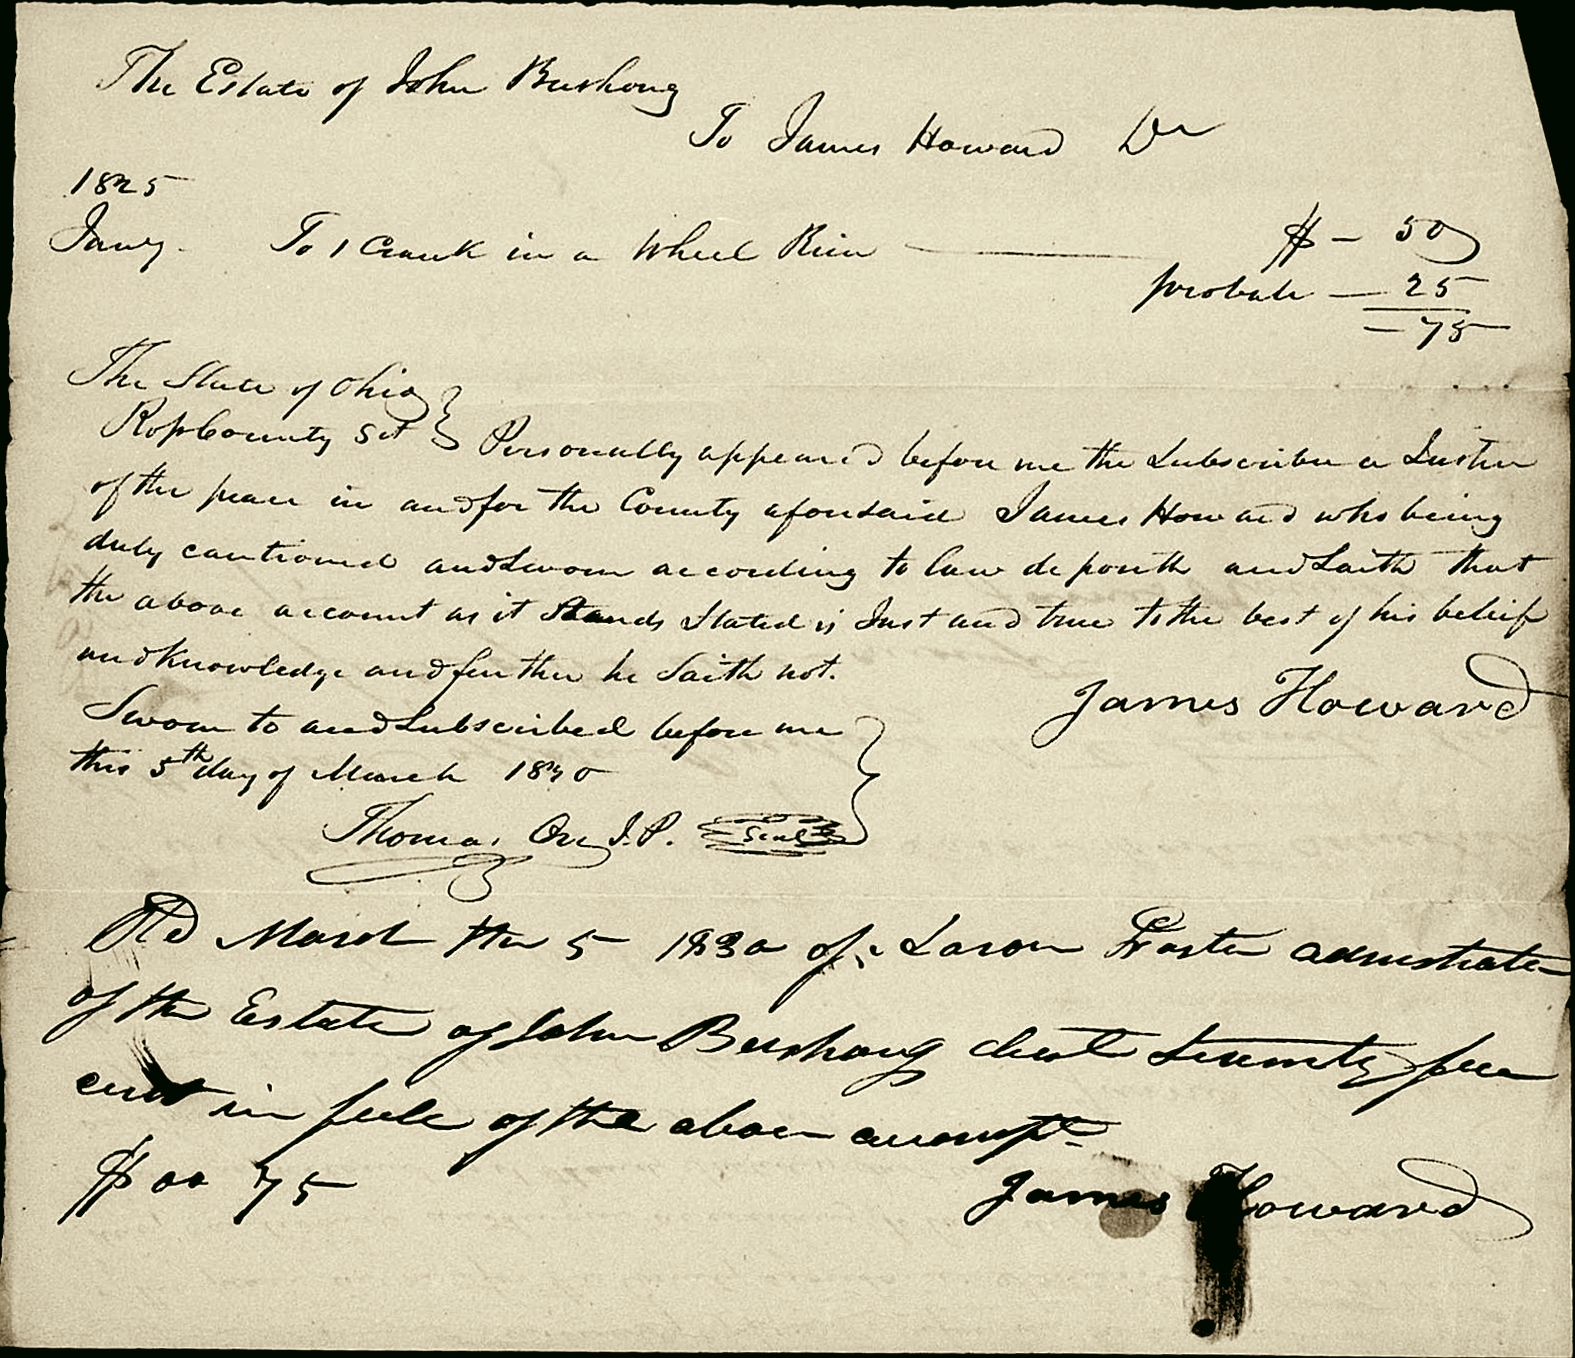 The Estate of John Bushong
To James Howard Dr
1825
Jany. To 1 Crank in a Wheel Rim $ - 50
probate - 25
- 75
The State of Ohio
Ross County Sct } Personally appeared before me the Subscriber a Justice
of the peace in and for the County aforesaid James Howard who being
duly cautioned and Sworn according to law deposeth and Saith that
the above account as it Stands Stated is Just and true to the best of his beleif
and Knowledge and further he Saith not.
James Howard
Sworn to and Subscribed before me
this 5th day of March 1830
Thomas Orr J.P. Seal
Recd March the 5 1830 of
of the Estate of John Bushong Seventy five
cent in full of the above
$ 00 75
James Howard